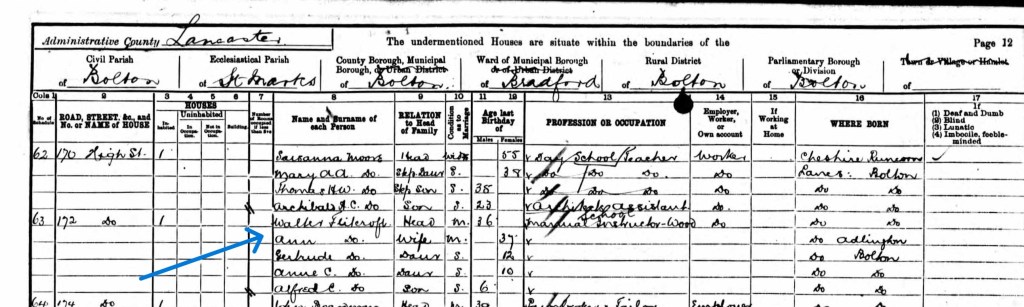 Administrative County Lancaster The undermentioned Houses are situate within the boundaries of the Page 12
Civil Parish Ecclesiastical Parish County Borough, Municipal Borough, or Urban District Ward of Municipal Borough or of Urban District Rural District Parliamentary Borough or Division Town or Village or Hamlet
of Bolton of St Marks of Bolton of Bradford of Bolton of Bolton of
Cols 1 2 3 4 5 6 7 8 9 10 11 12 13 14 15 16 17
No. of Schedule ROAD, STREET, &c., and No. or NAME of HOUSE HOUSES Inhabited Uninhabited In Occupation Not in Occupation Building Name and Surname of each Person RELATION to Head of Family Condition as to Marriage Age last Birthday of Males Females PROFESSION OR OCCUPATION Employer, Worker, or Own account If Working at Home WHERE BORN If (1) Deaf and Dumb (2) Blind (3) Lunatic (4) Imbecile, feeble-minded
62 170 High St. 1 Susanna Moors Head Wid 55 Day School Teacher Worker Cheshire Runcorn
Mary A.A. Do Step Daur S. 38 Do Do Do Do Lancs: Bolton
Thomas H.W. Do Step Son S. 38 Do Do Do Do Do Do
Archibald J.C. Do Son S. 23 Architects Assistant Do Do Do
63 172 Do 1 Walter Flitcroft Head M. 36 School Manual Instructor-Wood Do Do Do
Ann Do. Wife M. 37 Do Adlington
Gertrude Do. Daur S. 12 Do Bolton
Annie C. Do. Daur S. 10 Do Do
Alfred C. Do Son S. 6 Do Do
64 174 Do 1 John Head M. 30